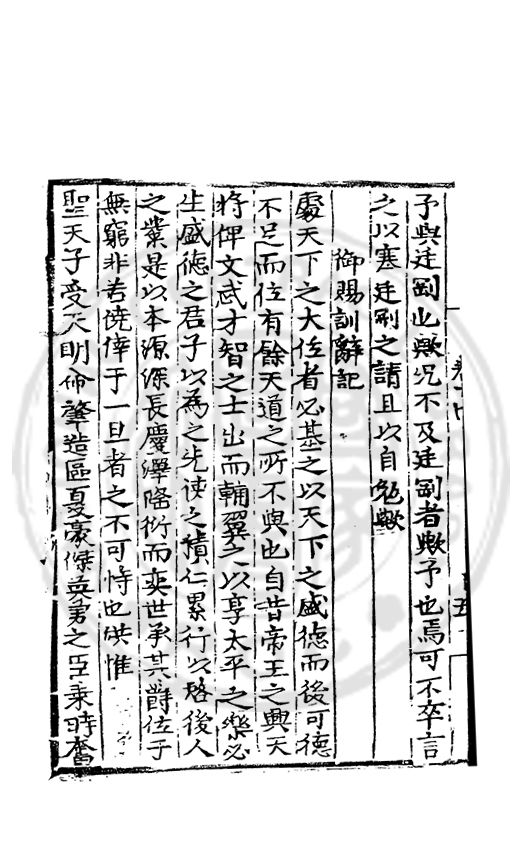 予與廷剛也歟況不及廷剛者歟予也焉可不卒言
之以塞廷剛之請且以自勉歟
御賜訓辭記
處天下之大位者必基之以天下之盛德而後可德
不足而位有餘天道之所不與也自昔帝王之興天
將俾文武才智之士出而輔翼之以享太平之樂必
生盛德之君子以為之先使之積仁累行以貽後人
之業是以本源深長慶澤隆衍而奕世承其爵位于
無窮非若僥倖于一旦者之不可恃也洪惟
聖天子受天明命肇造區夏豪傑英勇之臣乘時奮